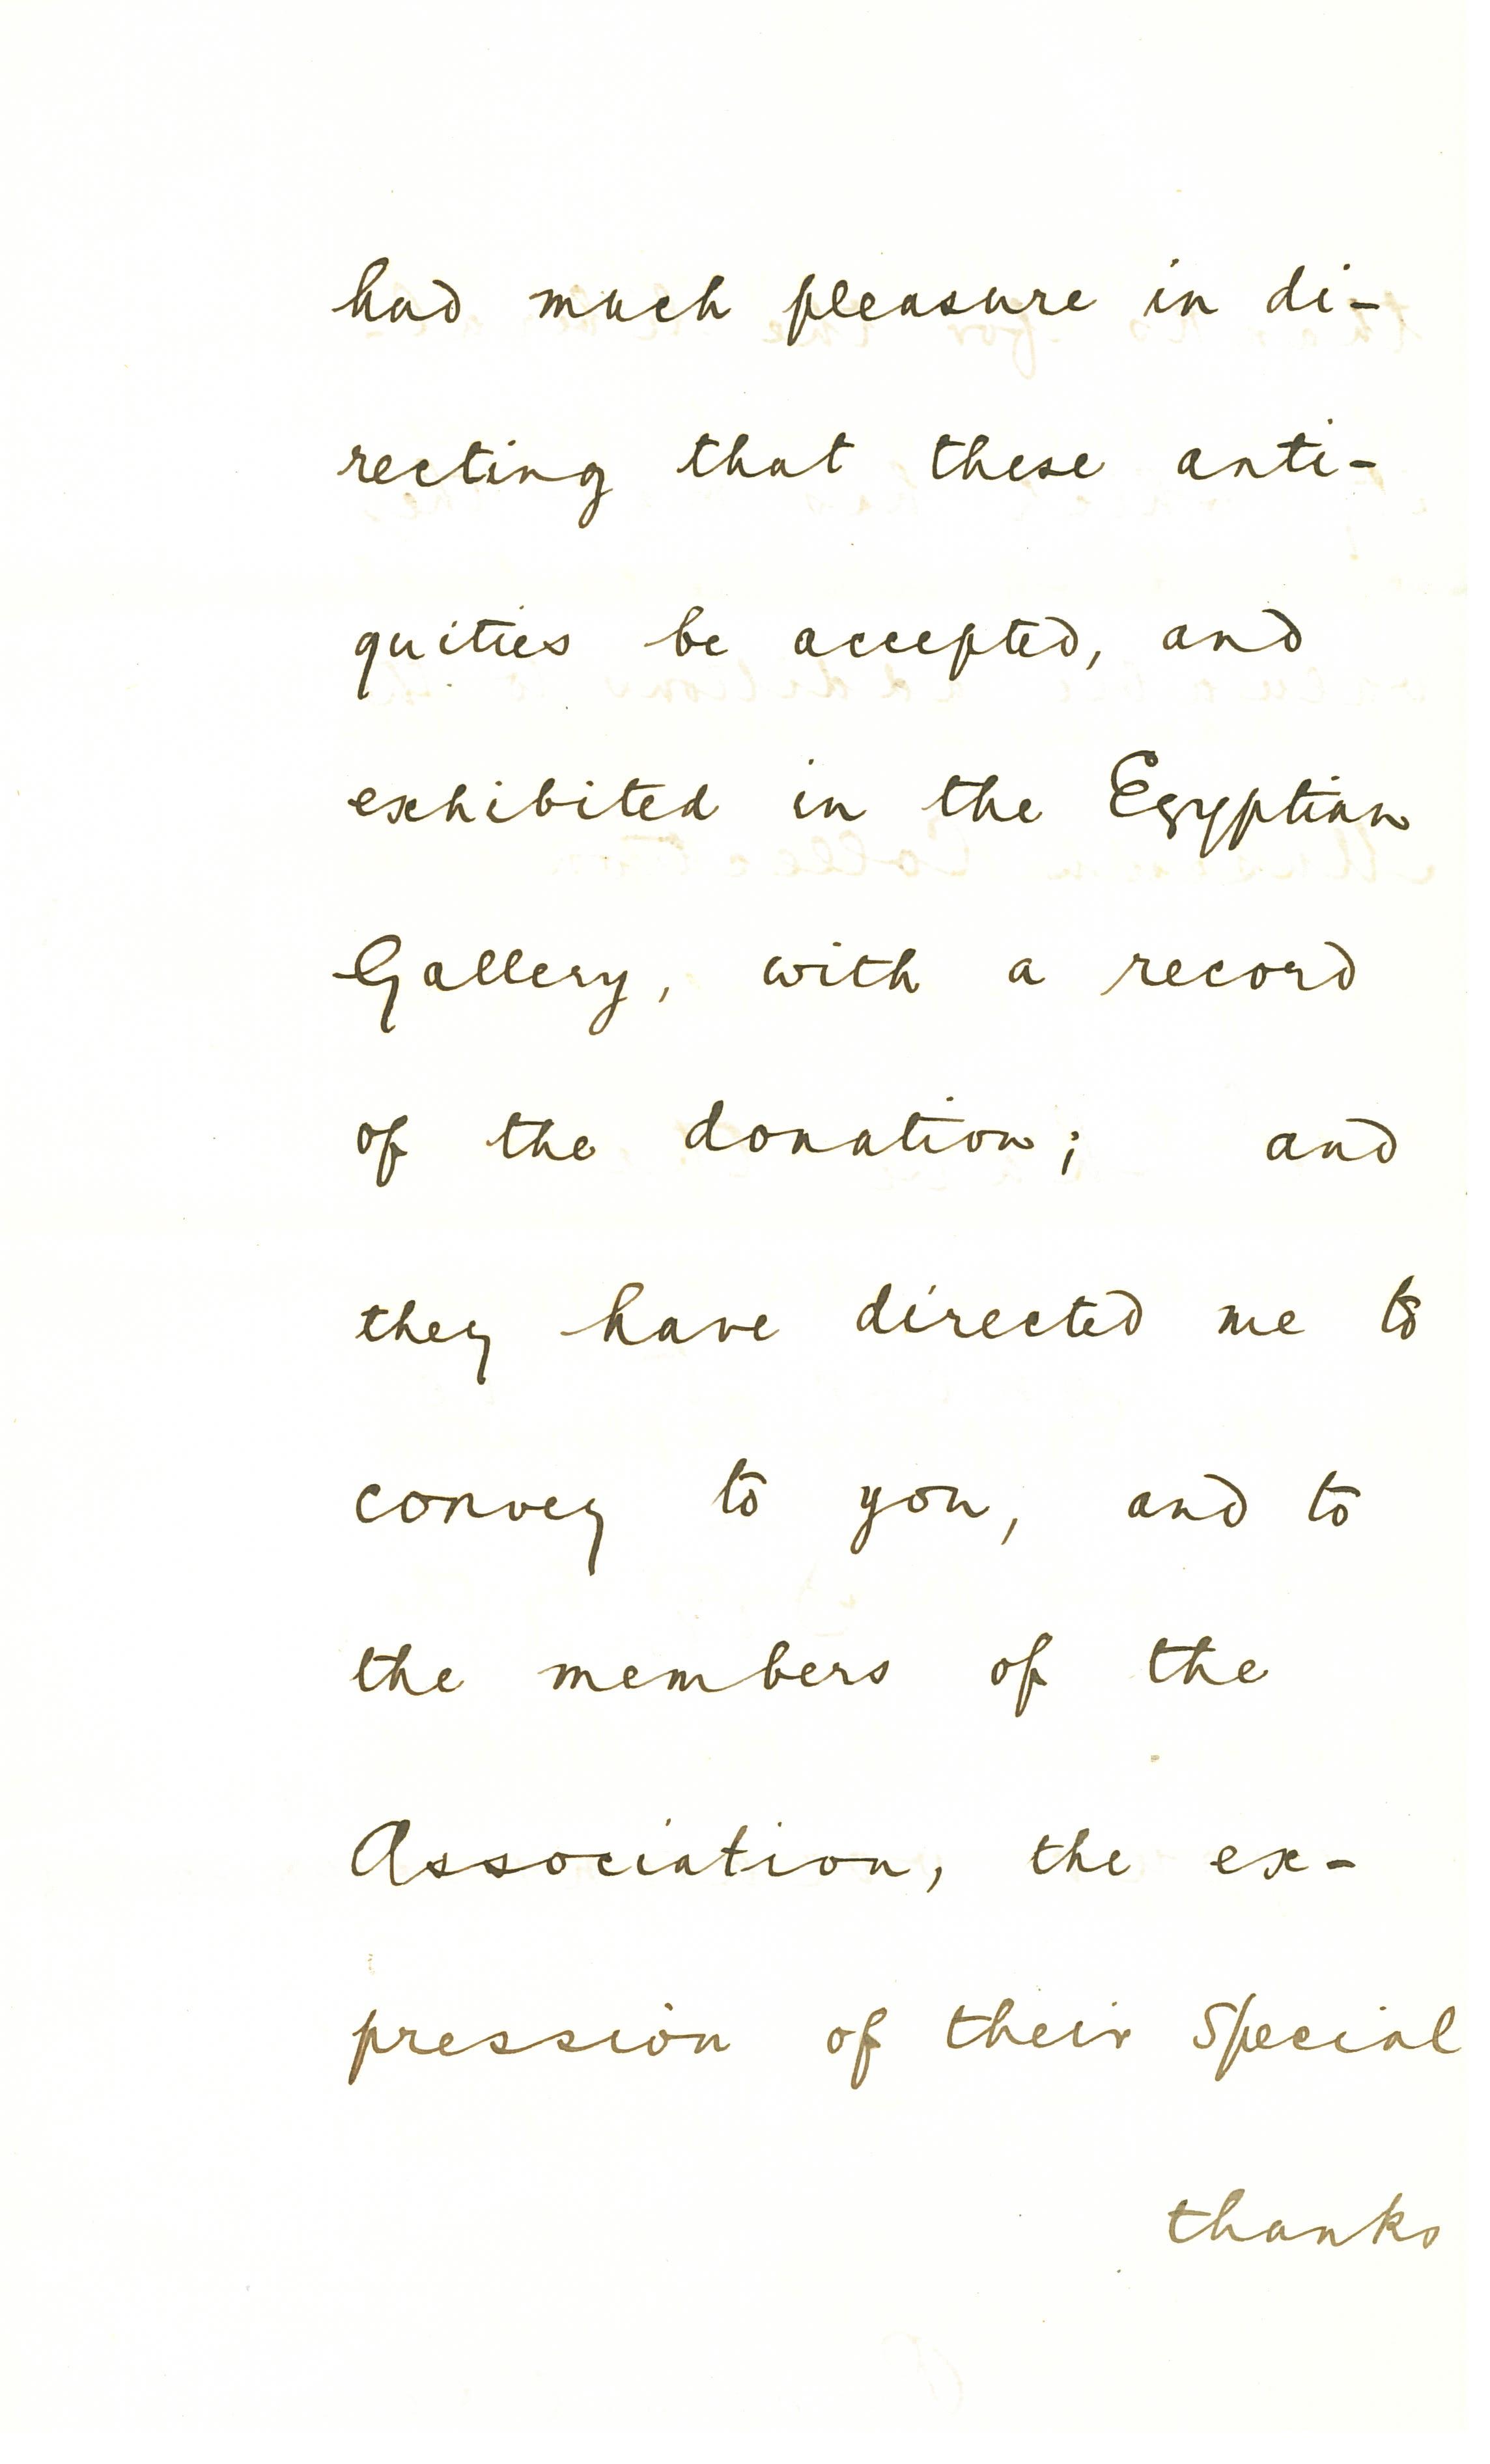 had much pleasure in di-
recting that these anti-
quities be accepted, and
exhibited in the Egyptian
Gallery, with a record
of the donation; and
they have directed me to
convey to you, and to
the members of the
Association, the ex-
pression of their Special
thanks